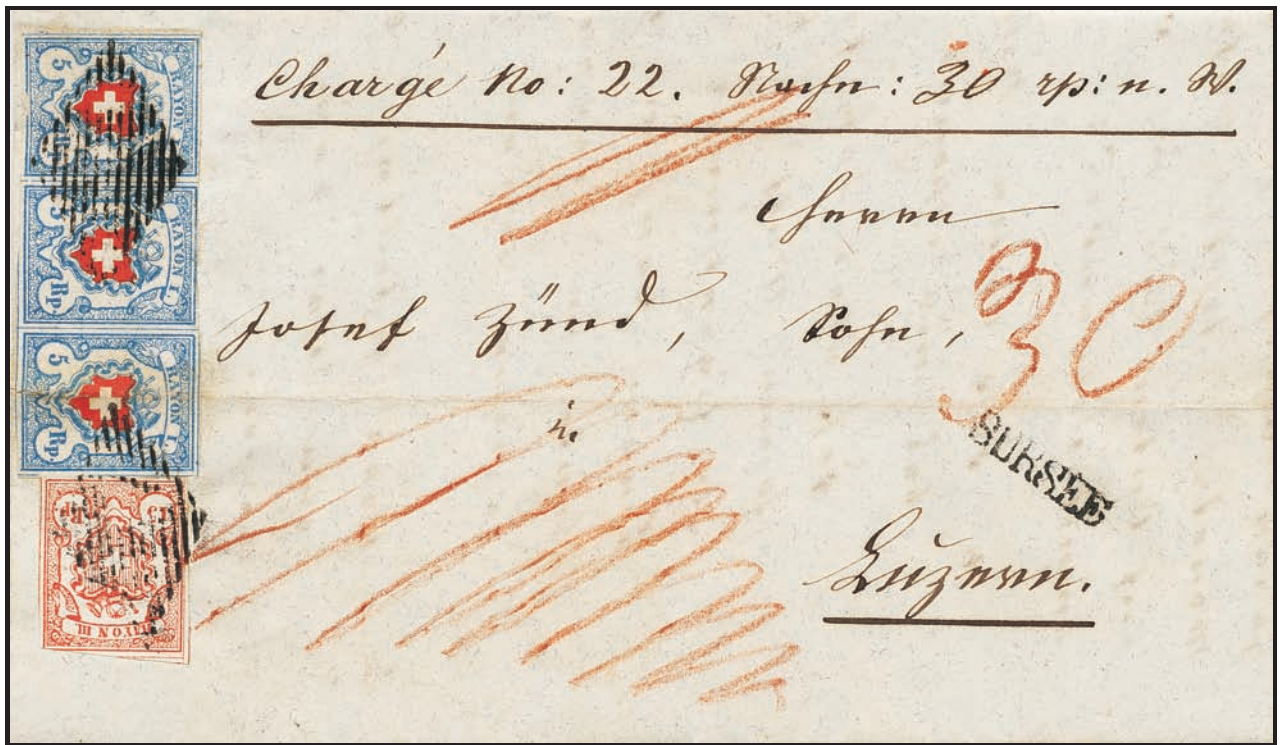 Chargé No: 22. Nachn: 30 rp: n. W.
Herrn
Josef Zünd, Sohn,
30
in
SURSEE
Luzern.
5 RAYON I. Rp.
5 RAYON I. Rp.
5 RAYON I. Rp.
15 Rp RAYON III.